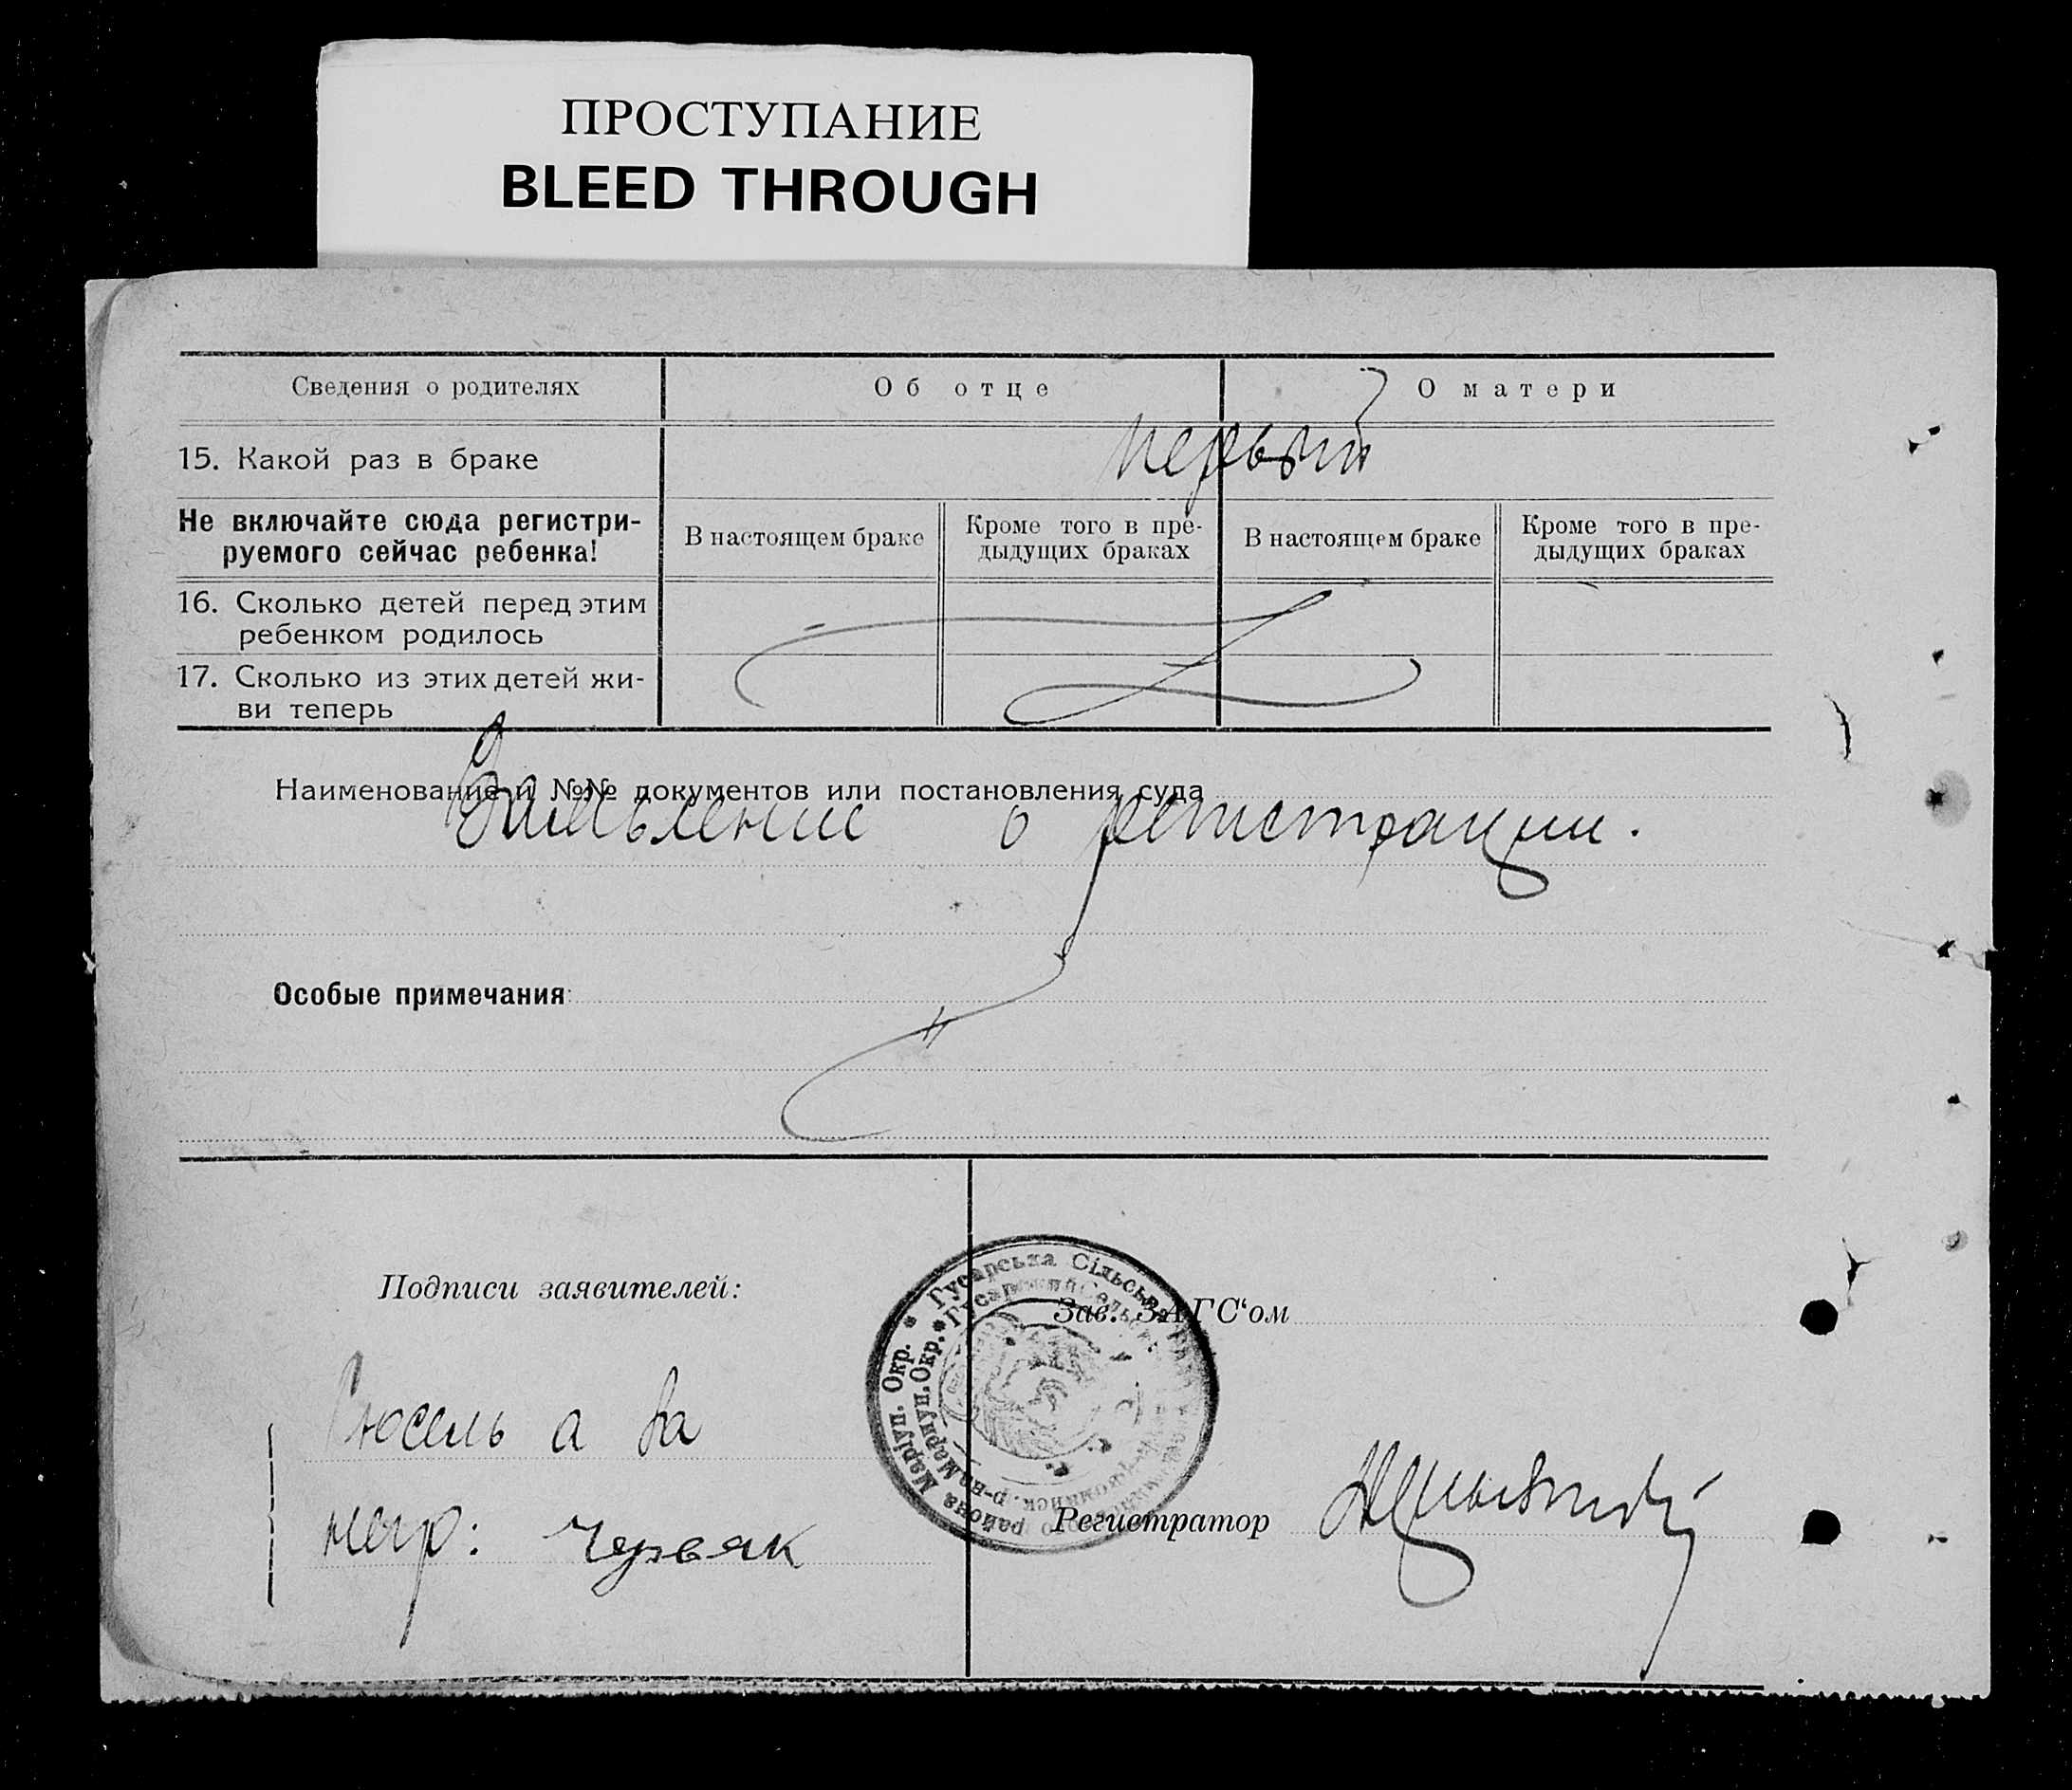 ПРОСТУПАНИЕ
BLEED THROUGH
Сведения о родителях Об отце О матери
15. Какой раз в браке первый
Не включайте сюда регистри-
руемого сейчас ребенка!
В настоящем браке
Кроме того в пре-
дыдущих браках
В настоящем браке
Кроме того в пре-
дыдущих браках
16. Сколько детей перед этим
ребенком родилось
17. Сколько из этих детей жи-
ви теперь
Наименование и №№ документов или постановления суда
Заявление о регистрации.
Особые примечания:
Подписи заявителей:
Гусарська Сільська
района Маріуп. Окр.
р-на Мариуп. Окр.
Зав. ЗАГС‘ом
а за
негр: Червяк
Регистратор